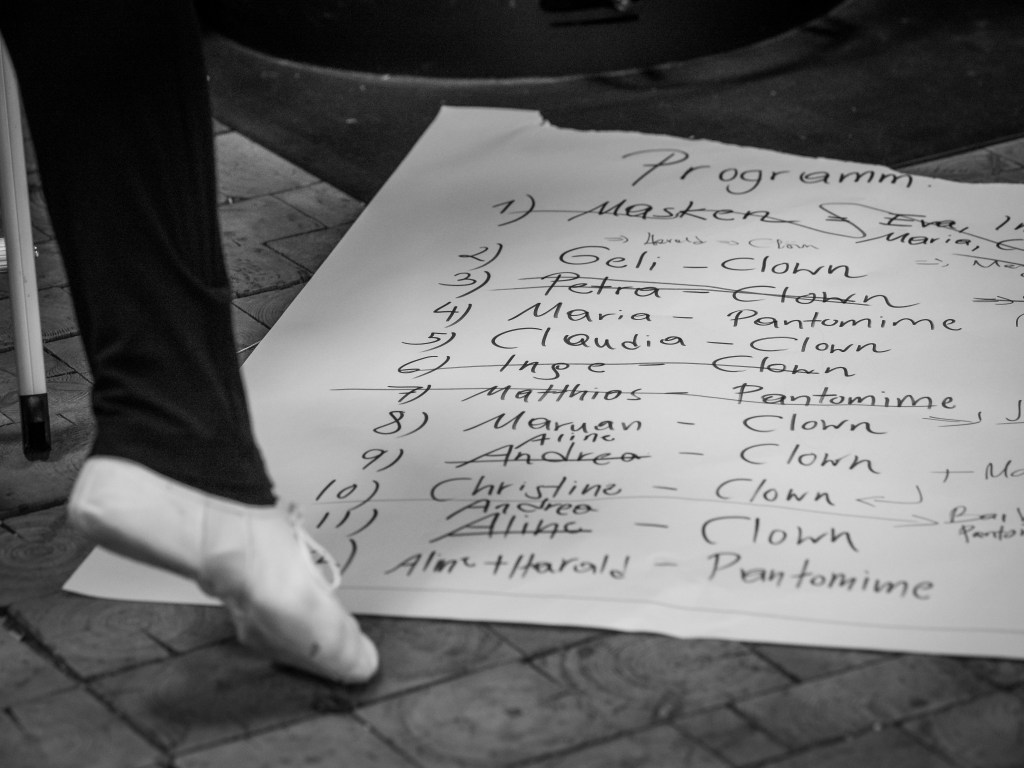 Programm.
1) Masken = Eva,
Maria,
⇒ Harald → Clown
2) Geli - Clown
3) Petra - Clown
4) Maria - Pantomime
5) Claudia - Clown
6) Inge - Clown
7) Matthios - Pantomime
8) Maruan - Clown
Aline
9) Andrea - Clown
10) Christine - Clown
Andrea
11) Aline - Clown
) Aline + Harald - Pantomime